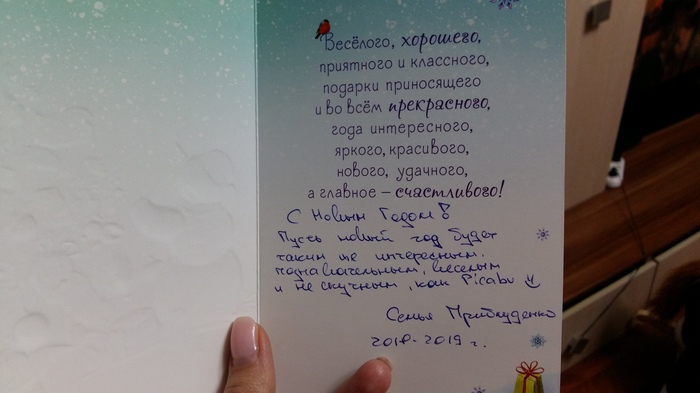 Весёлого, хорошего,
приятного и классного,
подарки приносящего
и во всём прекрасного,
года интересного,
яркого, красивого,
нового, удачного,
а главное – счастливого!
С Новым Годом!
Пусть новый год будет
таким же интересным,
познавательным, веселым
и не скучным, как Picabu
Семья Приблуденко
2018-2019 г.